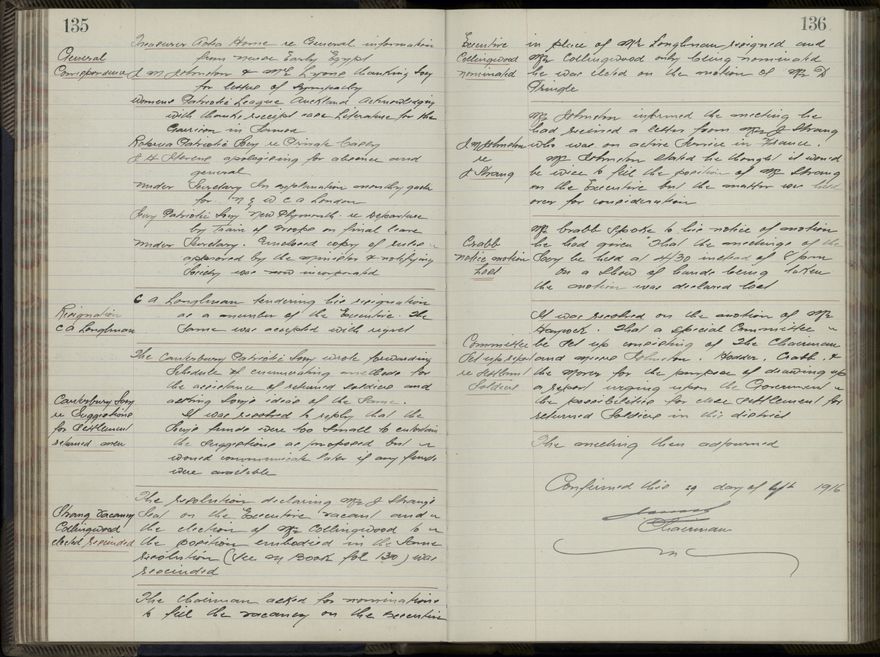 135
General
Correspondence
Treasurer Aotea Home re General information
from near Early Egypt
J M Johnston & Mrs Lyons thanking Socy
for letter of Sympathy
Womens Patriotic League Auckland acknowledging
with thanks receipt case Literature for the
Garrison in Samoa
Rotorua Patriotic Socy re Private
J H Stevens apologising for absence and
general
Under Secretary In explanation
for N Z W C A London
Socy Patriotic Socy New Plymouth re Departure
by Train of Troops on final leave
Under Secretary. Enclosed copy of rules
approved by the minister & notifying
Society was now incorporated
Resignation
C A Longhman
C A Longhman tendering his resignation
as a member of the Executive. The
Same was accepted with regret
Canterbury Socy
re Suggestions
for Settlement
returned men
The Canterbury Patriotic Socy wrote forwarding
Schedule enumerating methods for
the assistance of returned soldiers and
asking Socys ideas of the Same.
It was resolved to reply that the
Socys funds were too small to entertain
the Suggestions as proposed but
would communicate later if any funds
were available
Strang Vacancy
Collingwood
elected rescinded
The resolution declaring Mr J Strang's
Seat on the Executive vacant and
the election of Mr Collingwood to
the position embodied in the Same
resolution (See M Book fol 130) was
rescinded
The Chairman asked for nominations
to fill the vacancy on the Executive
136
Executive
Collingwood
nominated
in place of Mr Longhman resigned and
Mr Collingwood only being nominated
he was elected on the motion of Mr D
Pringle
J M Johnston
re
J Strang
Mr Johnston informed the meeting he
had received a letter from Mr J Strang
who was on active Service in France.
Mr Johnston stated he thought it would
be wise to fill the position of Mr Strang
on the Executive but the matter was held
over for consideration
Crabb
notice motion
Lost
Mr Crabb spoke to his notice of motion
he had given "That the meetings of the
Socy be held at 4/30 instead of 8 pm
On a Show of hands being taken
the motion was declared lost
Committee
Set up report
re Settlement
Soldiers
It was resolved on the motion of Mr
Haycock. That a Special Committee
be Set up consisting of The Chairman
and Messrs Johnston, Hodder, Crabb, &
the Mover for the purpose of drawing up
a report urging upon the Government
the possibilities for close Settlement for
returned Soldiers in this district
The meeting then adjourned
Confirmed this 29 day of Sept 1916
Chairman